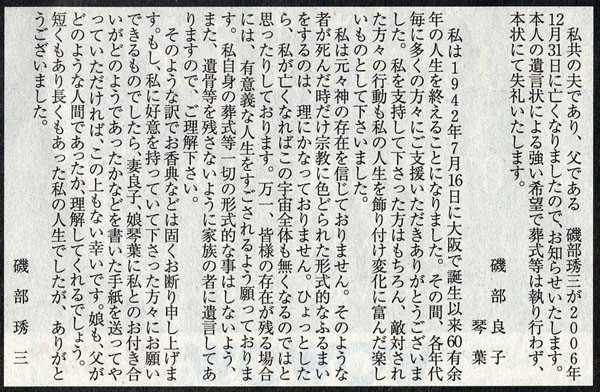 私共の夫であり、父である　磯部琇三が2006年
12月31日に亡くなりましたのでお知らせいたします。
本人の遺言状による強い希望で葬式等は執り行わず、
本状にて失礼いたします。
磯部良子
琴葉
私は1942年7月16日に大阪で誕生以来60有余
年の人生を終えることになりました。その間、各年代
毎に多くの方々にご支援いただきありがとうございま
した。私を支持して下さった方はもちろん、敵対され
た方々の行動も私の人生を飾り付け変化に富んだ楽し
いものとして下さいました。
私は元々神の存在を信じておりません。そのような
者が死んだ時だけ宗教に色どられた形式的なふるまい
をするのは、理にかなっておりません。ひょっとした
ら、私が亡くなればこの宇宙全体も無くなるのではと
思ったりしております。万一、皆様の存在が残る場合
には、有意義な人生をすごされるよう願っておりま
す。私自身の葬式等一切の形式的な事はしないよう、
また、遺骨等を残さないように家族の者に遺言してあ
りますので、ご理解下さい。
そのような訳でお香典などは固くお断り申し上げま
す。もし、私に好意を持っていて下さった方々にお願い
できるものでしたら、妻良子、娘琴葉に私とのお付き合
いがどのようであったかなどを書いた手紙を送ってや
っていただければ、この上もない幸いです。娘も、父が
どのような人間であったか、理解してくれるでしょう。
短くもあり長くもあった私の人生でしたが、ありがと
うございました。
磯部琇三